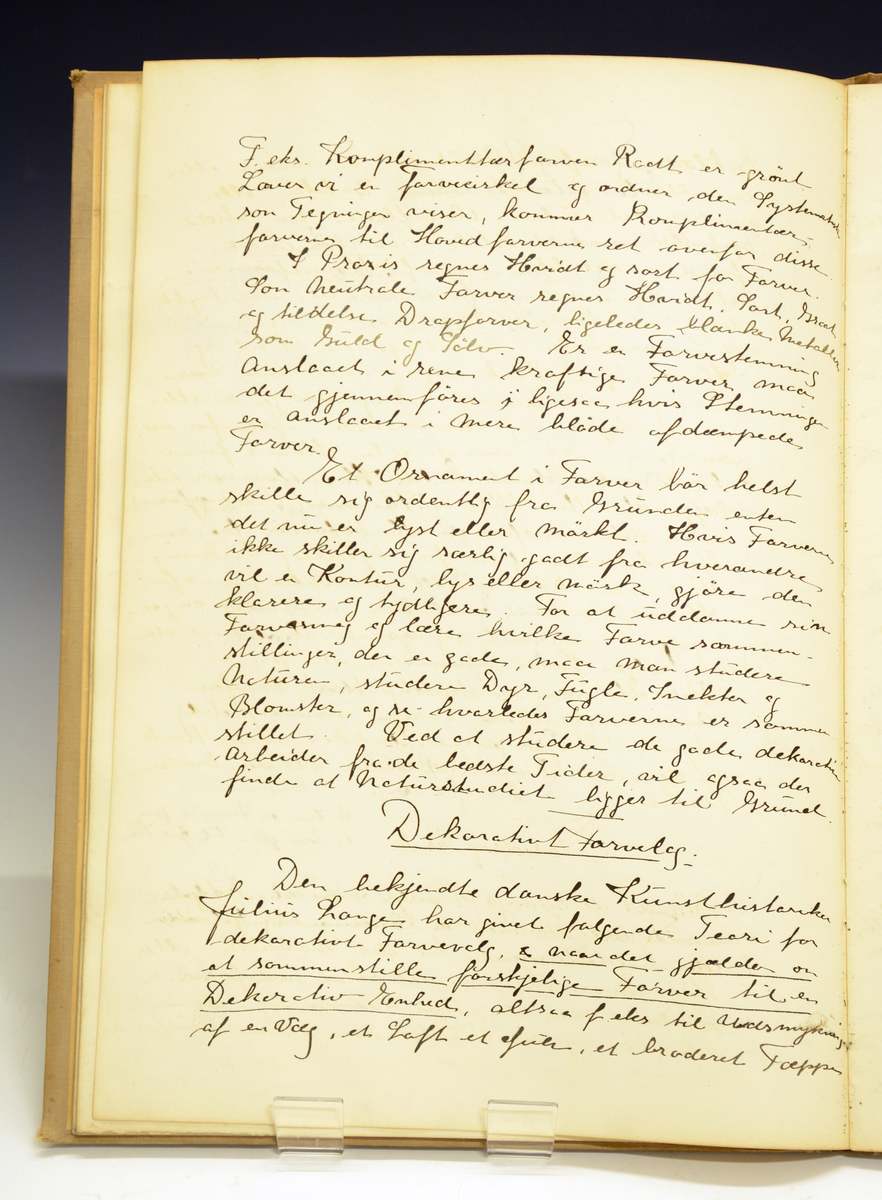 F. eks. Komplimenttærfarven Rødt er grönt
Laver vi en farvecirkel og ordner den Systematisk
som Tegningen viser, kommer Komplimentær-
farverne til Hovedfarverne ret overfor disse.
I Praxis regnes Hvidt og sort for Farver.
Som neutrale Farver regnes Hvidt, Sort, Graat
og tildelse Drapfarver, ligeledes blanke Metaller
som Guld og Sölv. Er en Farvestemning
anslaaet i rene kraftige Farver maa
det gjennemföres i ligesaa hvis Stemningen
er anslaaet i mere blöde afdæmpede
Farver.
Et Ornament i Farver bör helst
skille sig ordentlig fra Grunden enten
det nu er lyst eller mörkt. Hvis Farverne
ikke skiller sig særlig godt fra hverandre
vil en Kontur, lys eller mörk, gjöre den
klarere og tydligere. For at uddanne sin
Farvesmag og lære hvilke Farve sammen-
stillinger, der er gode, maa man studere
Naturen, studere Dyr, Fugle, Insekter og
Blomster, og se hvorledes Farverne er sammen
stillet. Ved at studere de gode dekorative
Arbeider fra de bedste Tider, vil ogsaa der
finde at Naturstudiet ligger til Grund.
Dekorativt Farvelag.
Den bekjendte danske Kunsthistoriker
Julius Lange har givet følgende Teori for
dekorativt Farvevalg, naar det gjælder om
at sammenstille forskjelige Farver til en
Dekorativ Enhed, altsaa f. eks til Udsmykning
af en Væg, et Loft et , et broderet Tæppe